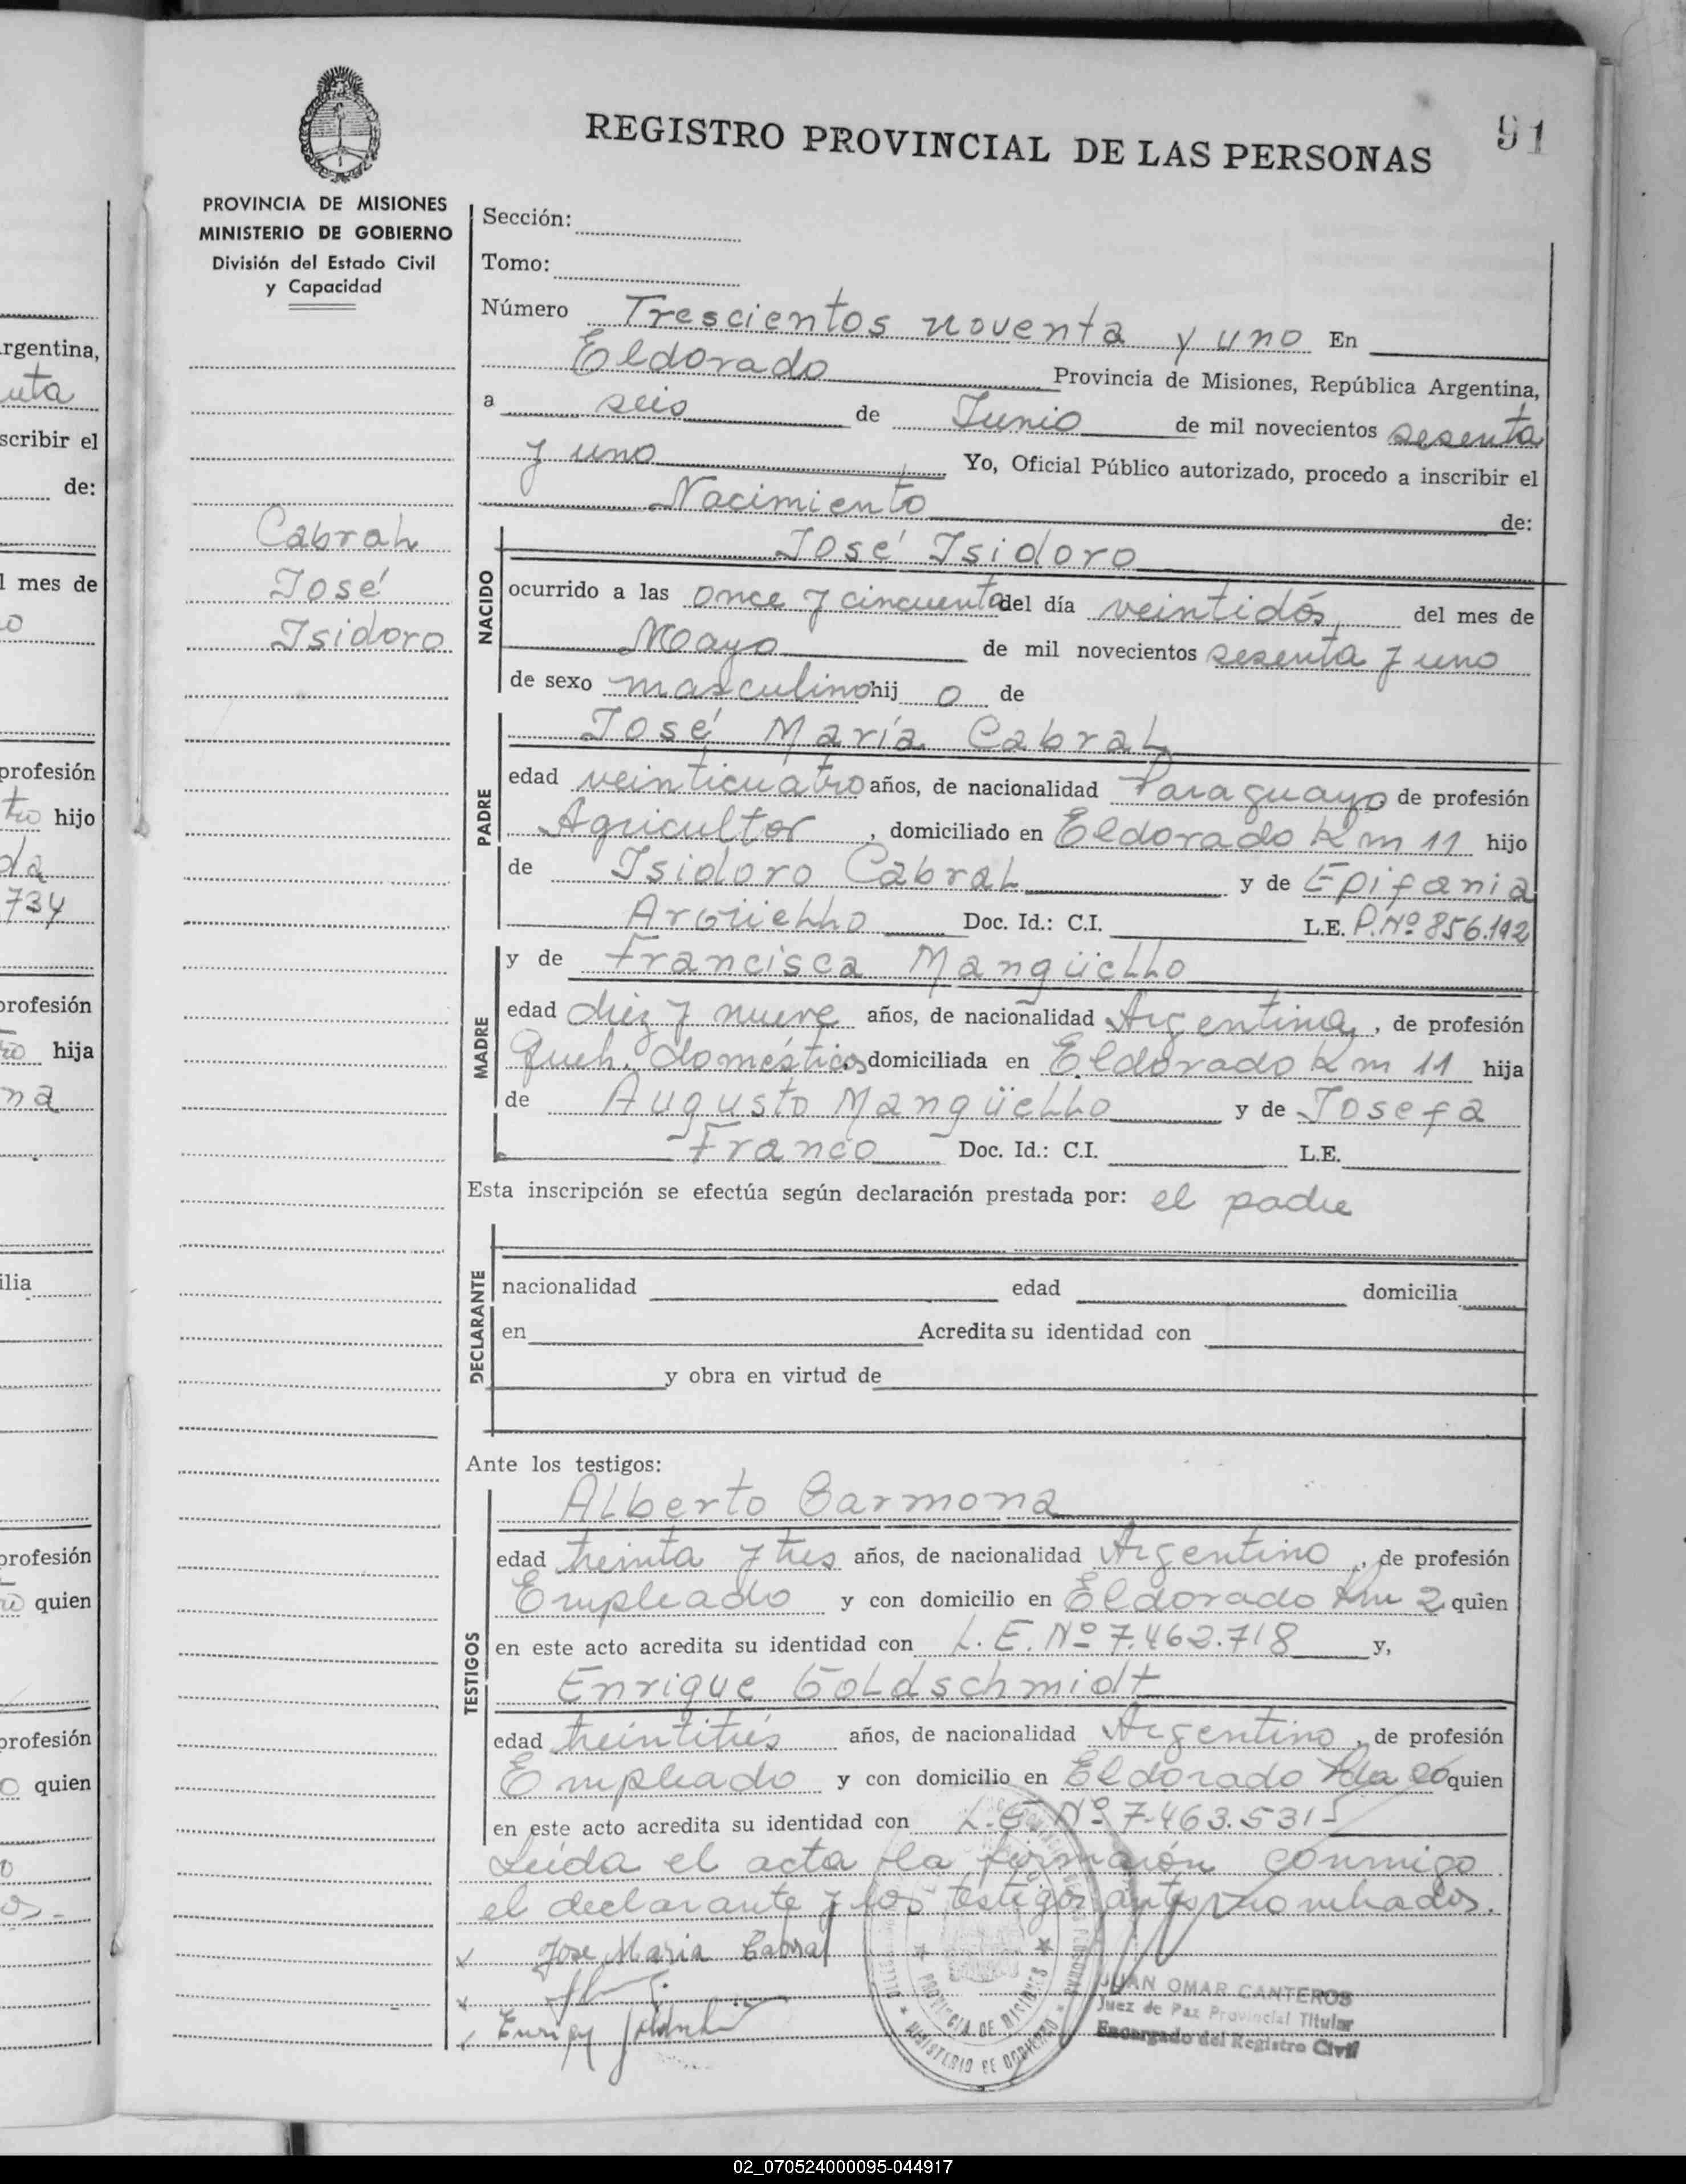 91
REGISTRO PROVINCIAL DE LAS PERSONAS
PROVINCIA DE MISIONES
MINISTERIO DE GOBIERNO
División del Estado Civil
y Capacidad
Cabral
José
Isidoro
Sección:
Tomo:
Número Trescientos noventa y uno En
Eldorado Provincia de Misiones, República Argentina,
a seis de Junio de mil novecientos sesenta
y uno Yo, Oficial Público autorizado, procedo a inscribir el
Nacimiento de:
NACIDO
José Isidoro
ocurrido a las once y cincuenta del día veintidós del mes de
Mayo de mil novecientos sesenta y uno
de sexo masculino hij o de
PADRE
José María Cabral
edad veinticuatro años, de nacionalidad Paraguayo de profesión
Agricultor, domiciliado en Eldorado Km 11 hijo
de Isidoro Cabral y de Epifania
Argüello Doc. Id.: C.I. L.E. P.Nº 856.192
MADRE
y de Francisca Mangüello
edad diez y nueve años, de nacionalidad Argentina, de profesión
Queh. domésticos domiciliada en Eldorado Km 11 hija
de Augusto Mangüello y de Josefa
Franco Doc. Id.: C.I. L.E.
Esta inscripción se efectúa según declaración prestada por: el padre
DECLARANTE
nacionalidad edad domicilia
en Acredita su identidad con
y obra en virtud de
Ante los testigos:
TESTIGOS
Alberto Carmona
edad treinta y tres años, de nacionalidad Argentino, de profesión
Empleado y con domicilio en Eldorado Km 2 quien
en este acto acredita su identidad con L.E. Nº 7.462.718 y,
Enrique Goldschmidt
edad treintitrés años, de nacionalidad Argentino, de profesión
Empleado y con domicilio en Eldorado quien
en este acto acredita su identidad con L.E. Nº 7.463.531
Leída el acta la firmarón conmigo
el declarante y los testigos antes nombados.
Jose Maria Cabral
PROVINCIA DE MISIONES
MINISTERIO DE GOBIERNO
JUAN OMAR CANTEROS
Juez de Paz Provincial Titular
Encargado del Registro Civil
rgentina,
scribir el
de:
l mes de
profesión
hijo
734
profesión
hija
ilia
profesión
quien
profesión
quien
02_070524000095-044917